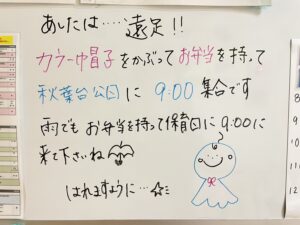 あしたは……遠足!!
カラー帽子をかぶってお弁当を持って
秋葉台公園に 9:00 集合です
雨でもお弁当を持って保育園に9:00に
来て下さいね
はれますように…☆ミ